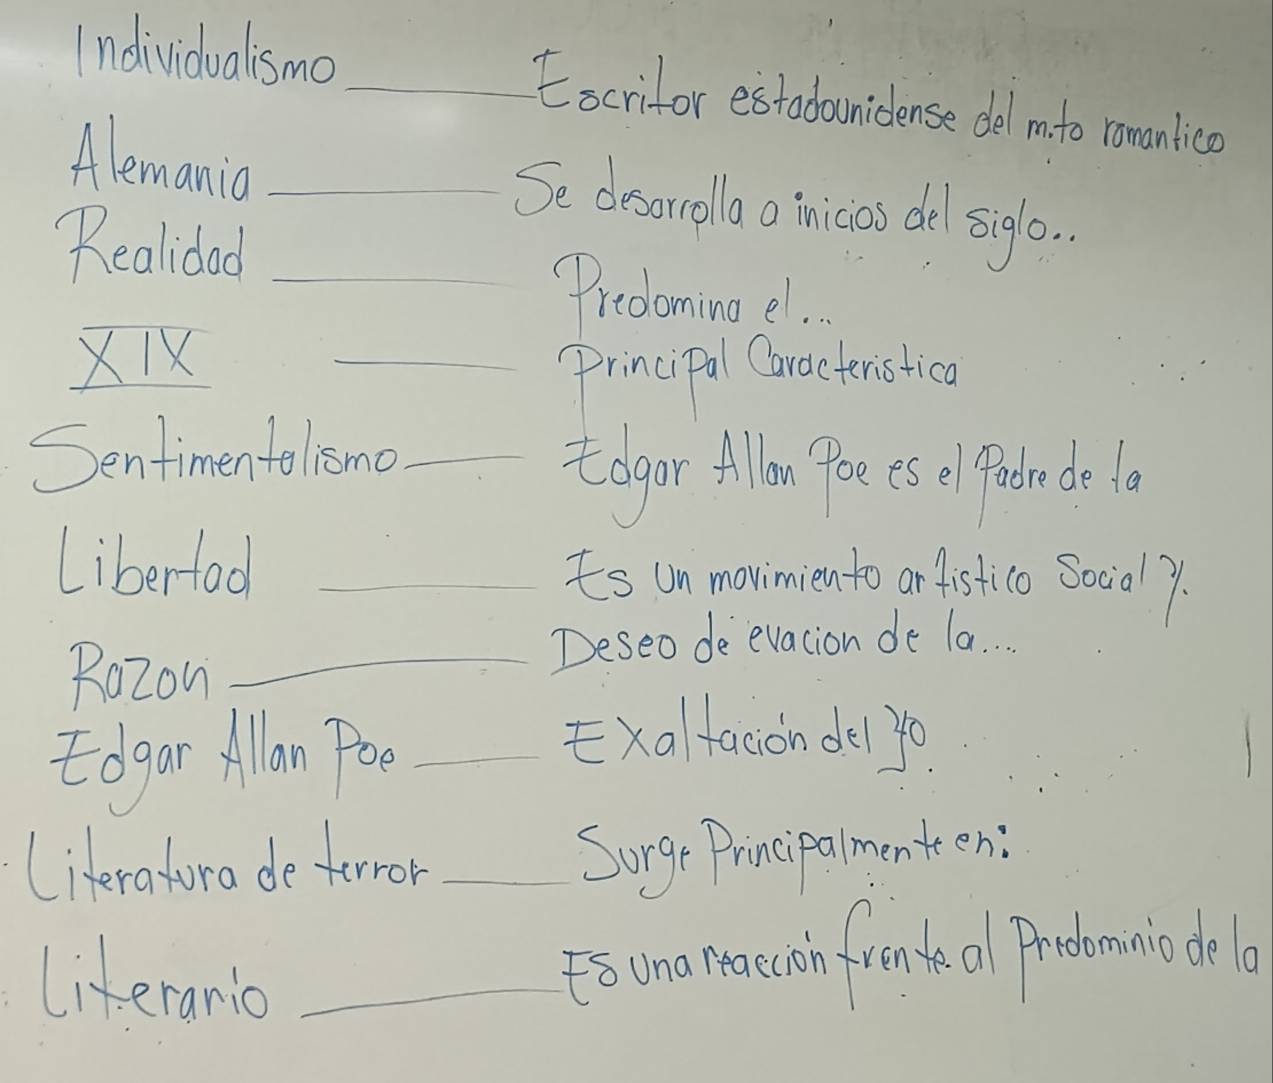 Individualismo ______ Escritor estadounidense del mito romantico
Alemania ______ Se desarrolla a inicios del siglo..
Realidad ______ Predomina el...
XIX ______ Principal Caracteristica
Sentimentalismo ______ Edgar Allan Poe es el Padre de la
Libertad ______ Es un movimiento artistico Social y.
Razon ______ Deseo de evacion de la...
Edgar Allan Poe ______ Exaltación del yo.
Literatura de terror ______ Surge Principalmente en:
Literario ______ Es una reacción frente al Predominio de la